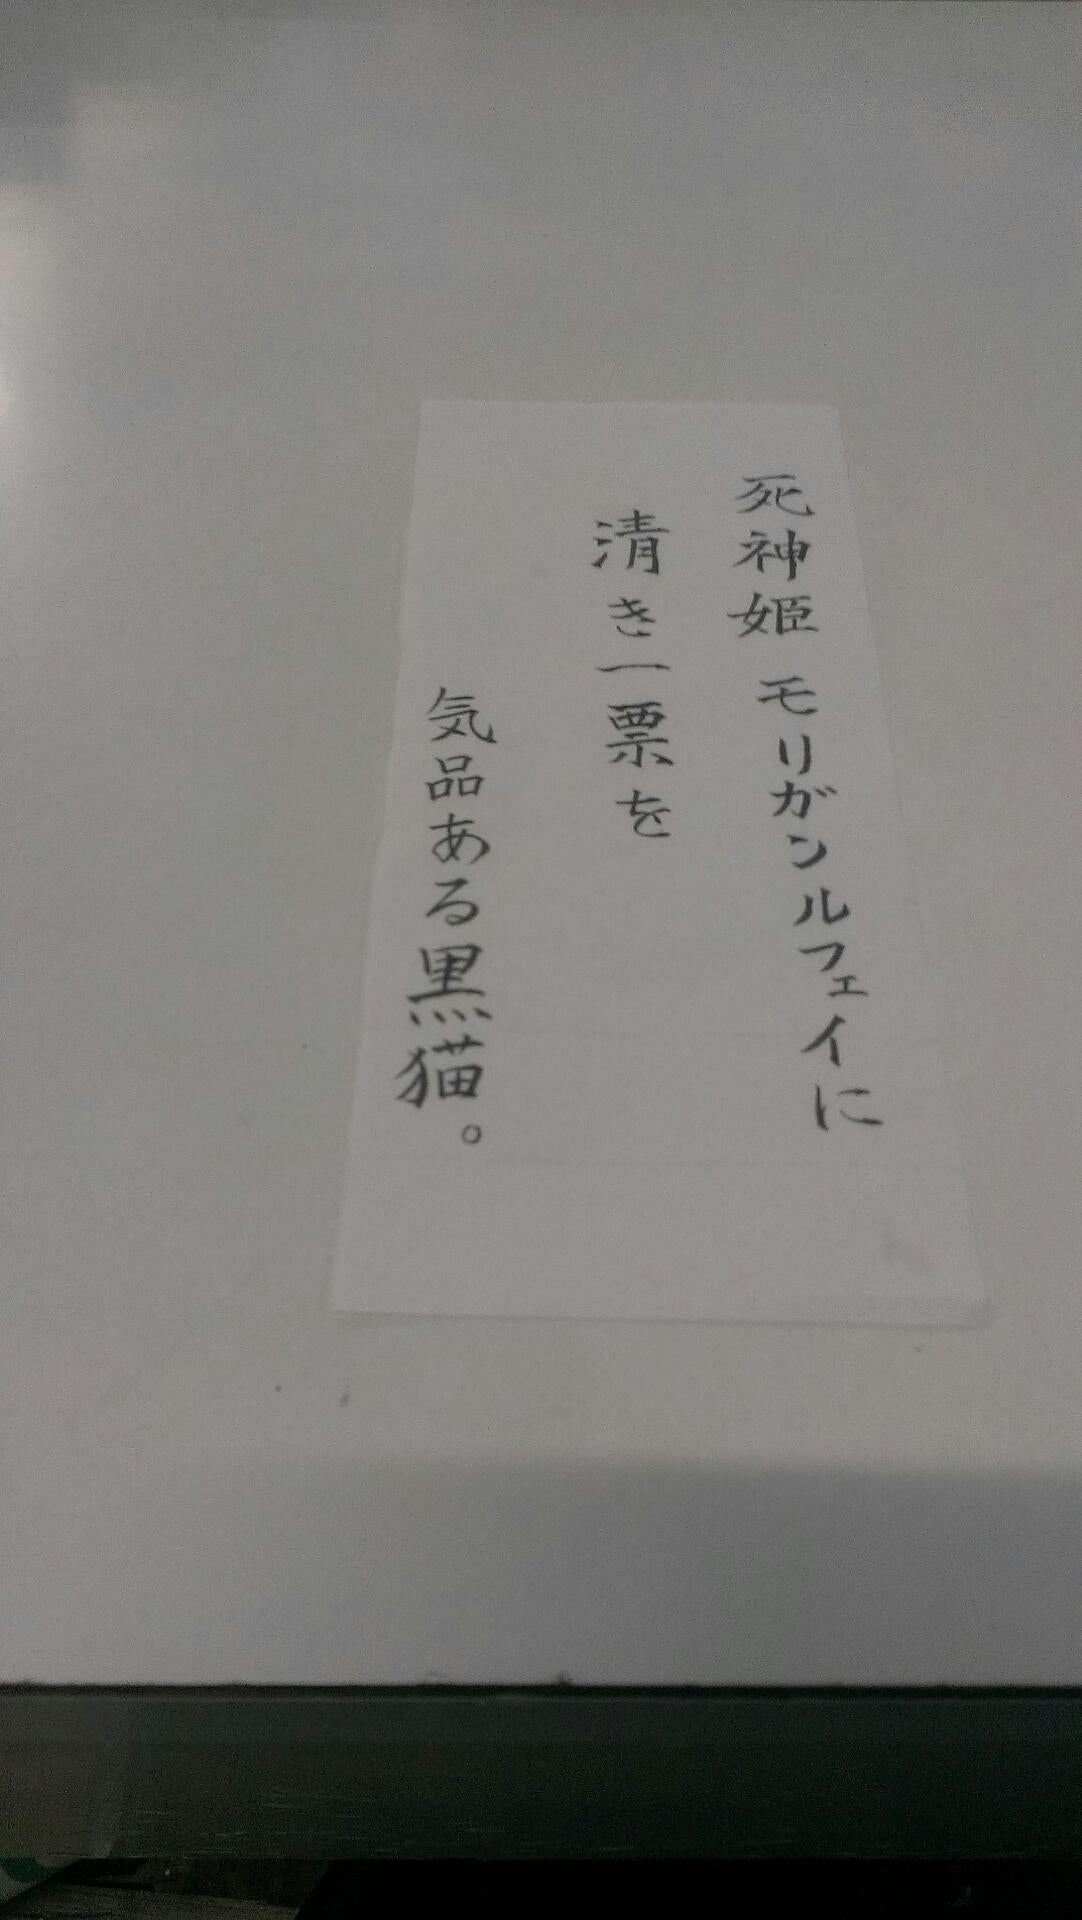 死神姫 モリガンルフェイに
清き一票を
気品ある黒猫。